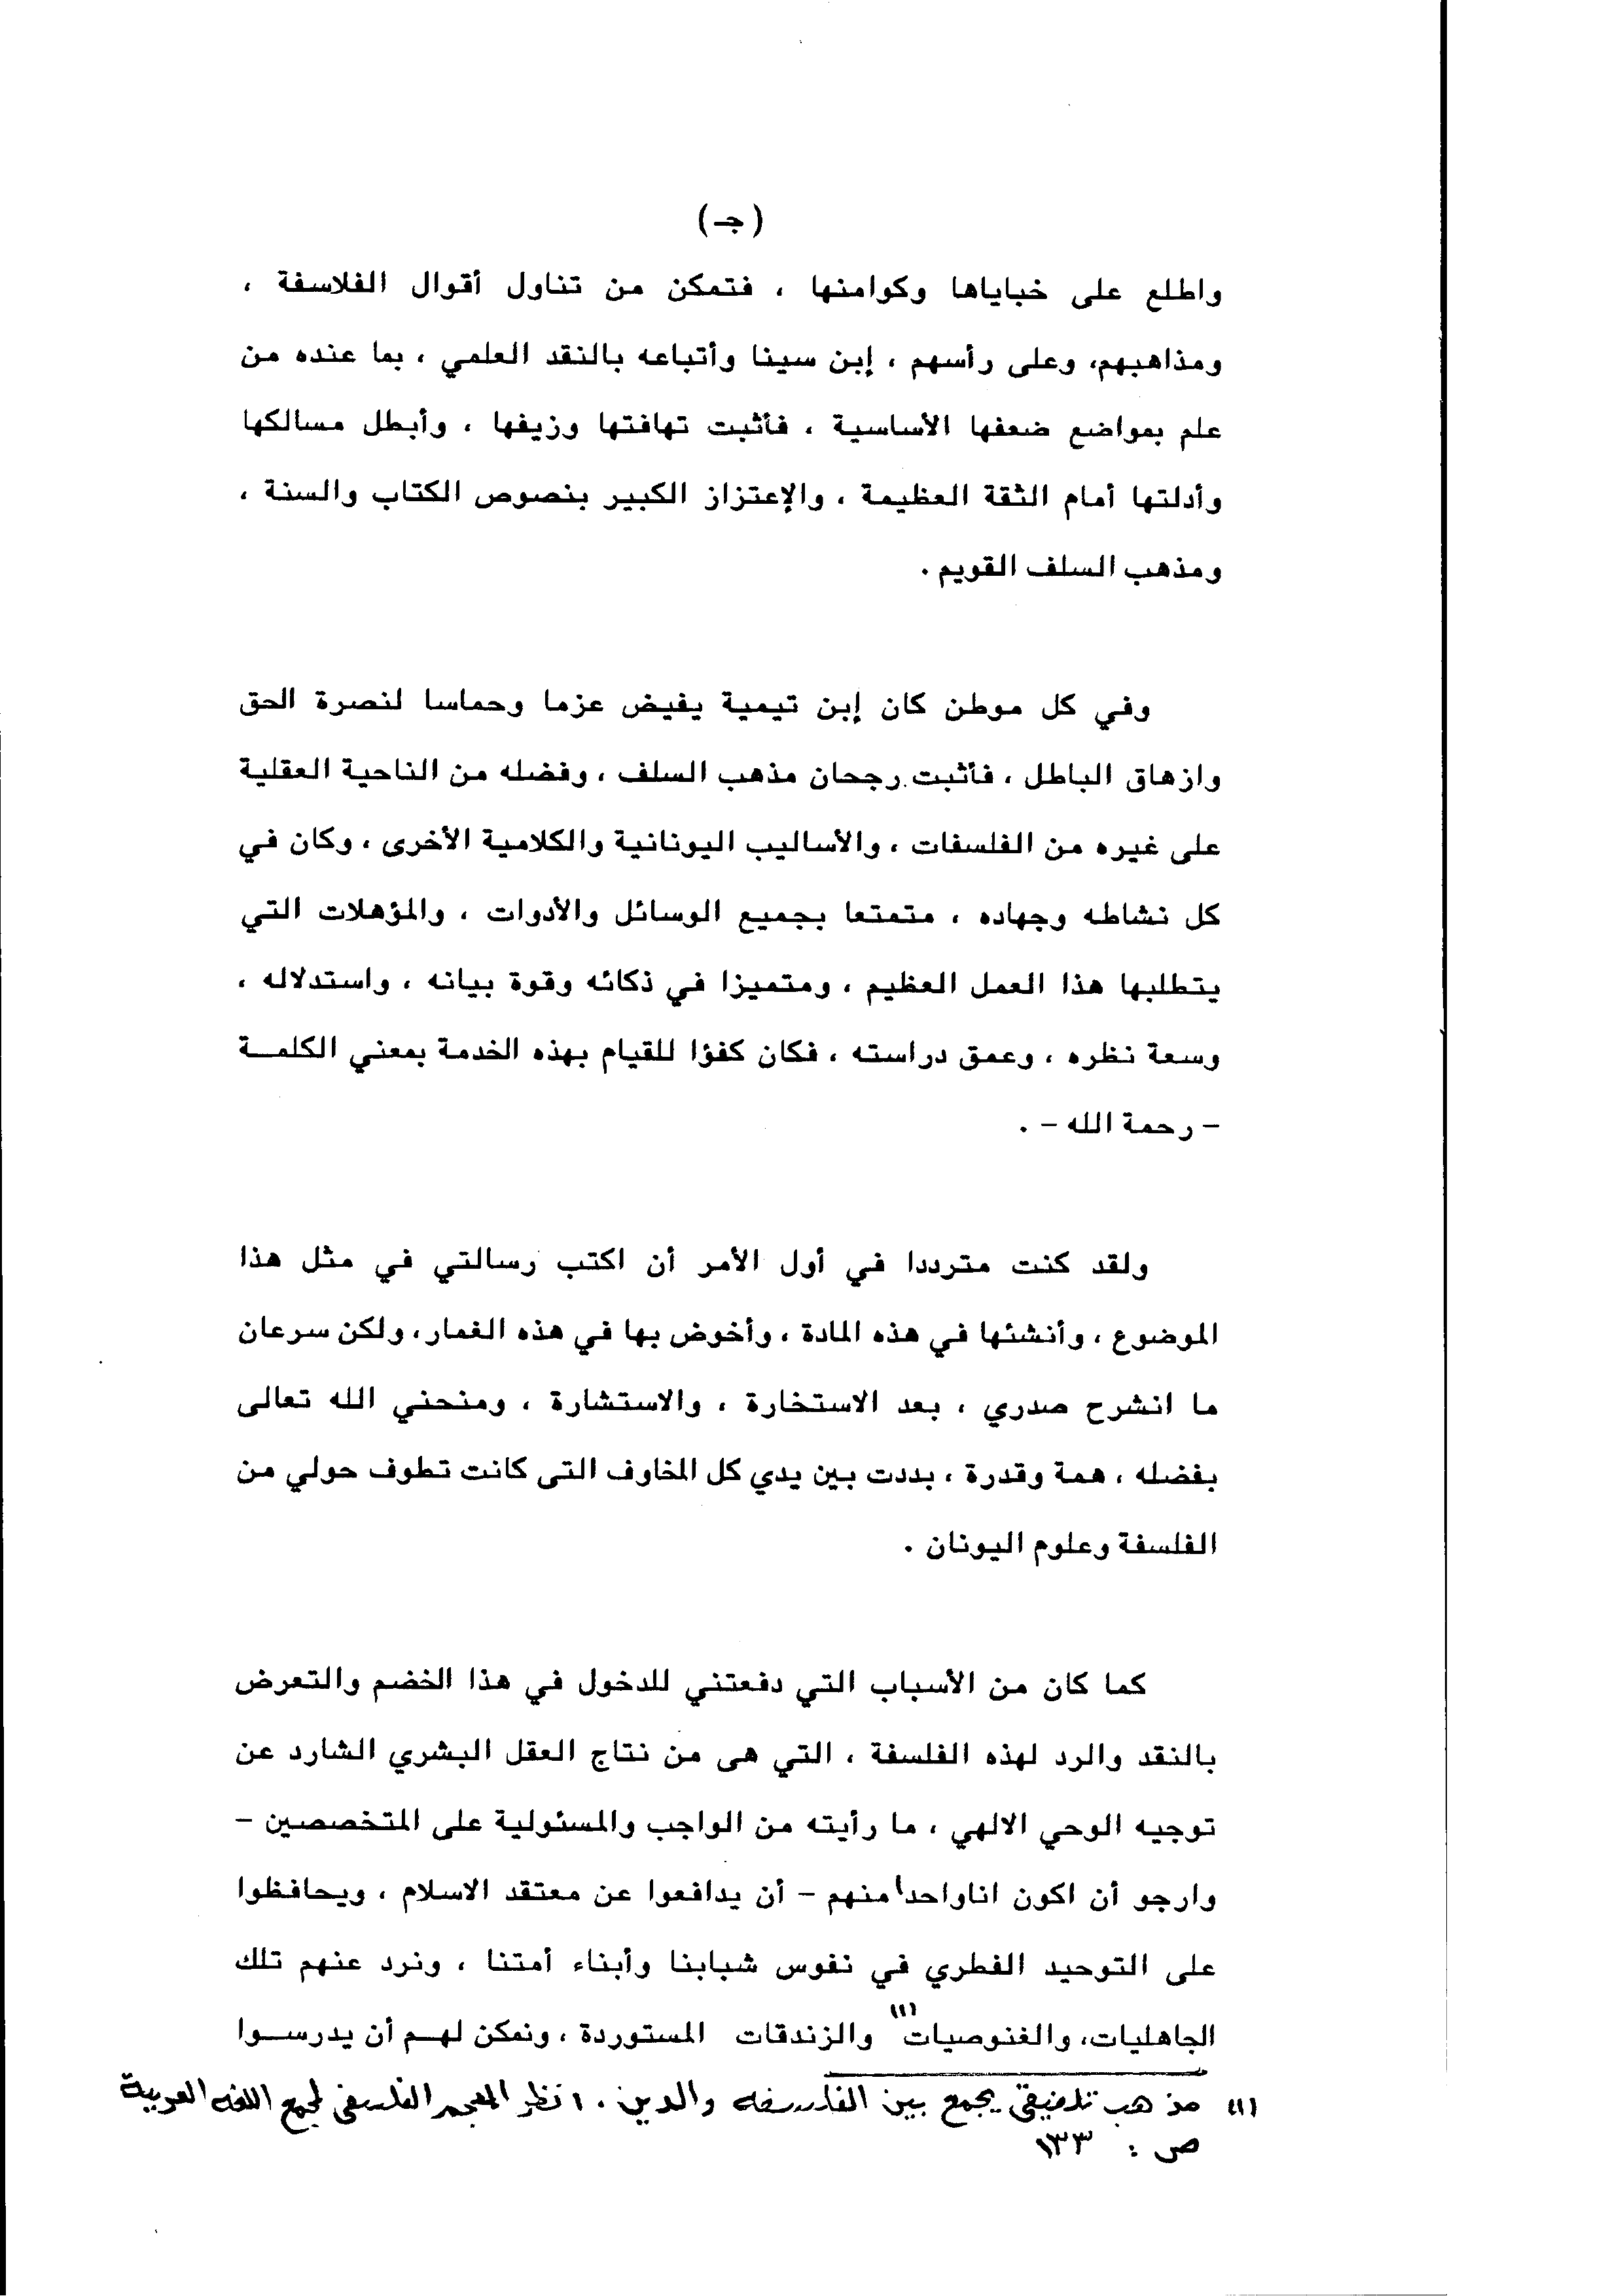 (جـ)
واطلع على خباياها وكوامنها ، فتمكن من تناول أقوال الفلاسفة ،
ومذاهبهم، وعلى رأسهم ، إبن سينا وأتباعه بالنقد العلمي ، بما عنده من
علم بمواضع ضعفها الأساسية ، فأثبت تهافتها وزيفها ، وأبطل مسالكها
وأدلتها أمام الثقة العظيمة ، والإعتزاز الكبير بنصوص الكتاب والسنة ،
ومذهب السلف القويم .
وفي كل موطن كان إبن تيمية يفيض عزما وحماسا لنصرة الحق
وازهاق الباطل ، فأثبت رجحان مذهب السلف ، وفضله من الناحية العقلية
على غيره من الفلسفات ، والأساليب اليونانية والكلامية الأخرى ، وكان في
كل نشاطه وجهاده ، متمتعا بجميع الوسائل والأدوات ، والمؤهلات التي
يتطلبها هذا العمل العظيم ، ومتميزا في ذكائه وقوة بيانه ، واستدلاله ،
وسعة نظره ، وعمق دراسته ، فكان كفؤا للقيام بهذه الخدمة بمعني الكلمـــة
– رحمة الله – .
ولقد كنت مترددا في أول الأمر أن اكتب رسالتي في مثل هذا
الموضوع ، وأنشئها في هذه المادة ، وأخوض بها في هذه الغمار، ولكن سرعان
ما انشرح صدري ، بعد الاستخارة ، والاستشارة ، ومنحني الله تعالى
بفضله ، همة وقدرة ، بددت بين يدي كل المخاوف التى كانت تطوف حولي من
الفلسفة وعلوم اليونان .
كما كان من الأسباب التي دفعتني للدخول في هذا الخضم والتعرض
بالنقد والرد لهذه الفلسفة ، التي هى من نتاج العقل البشري الشارد عن
توجيه الوحي الالهي ، ما رأيته من الواجب والمسئولية على المتخصصين –
وارجو أن اكون اناواحدا منهم – أن يدافعوا عن معتقد الاسلام ، ويحافظوا
على التوحيد الفطري في نفوس شبابنا وأبناء أمتنا ، ونرد عنهم تلك
الجاهليات، والغنوصيات (١) والزندقات المستوردة ، ونمكن لهـــم أن يدرســـوا
(١) مذهب تلفيقي يجمع بين الفلسفه والدين . انظر المعجم الفلسفي لمجمع اللغه العربية
ص : ١٣٣